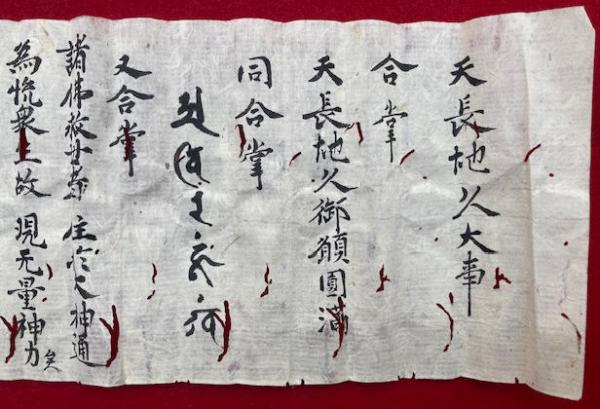 天長地久大事
合掌
天長地久御願圓満
同合掌
又合掌
諸佛救世者 住於大神通
為悦衆生故 現无量神力矣